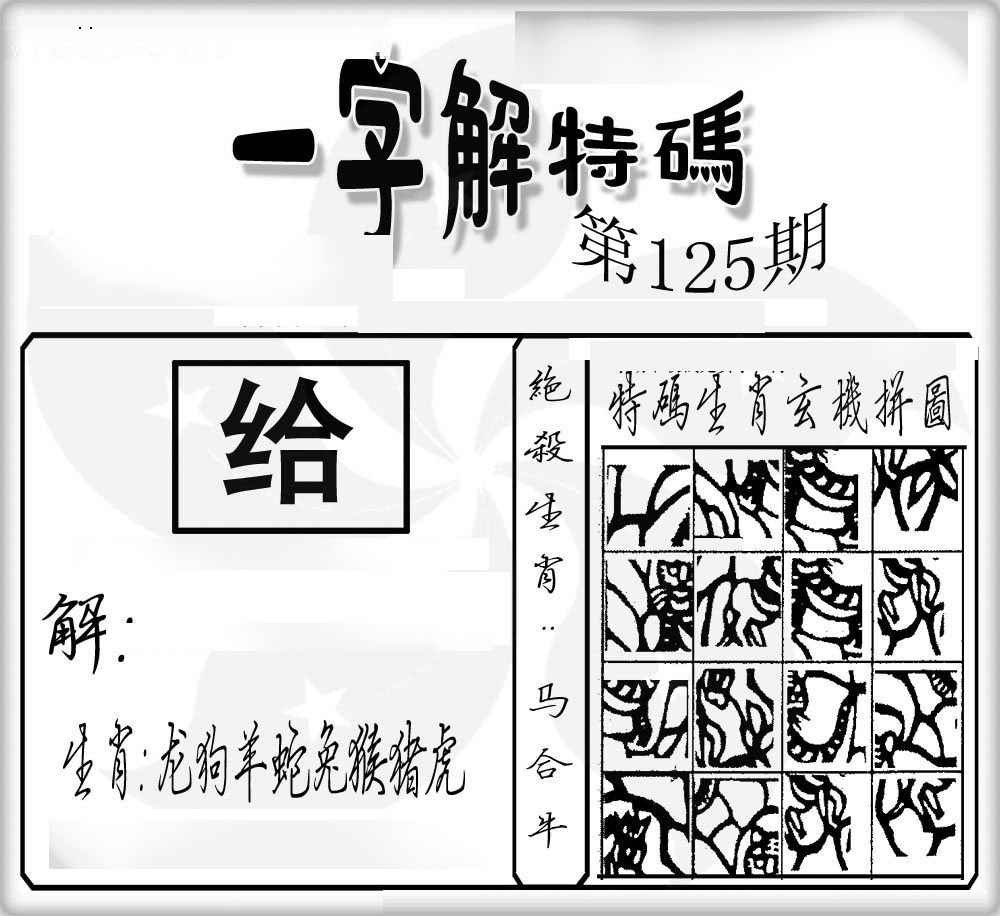 一字解特碼
第125期
给
解：
生肖:龙狗羊蛇兔猴猪虎
絶殺生肖：马合牛
特碼生肖玄機拼圖